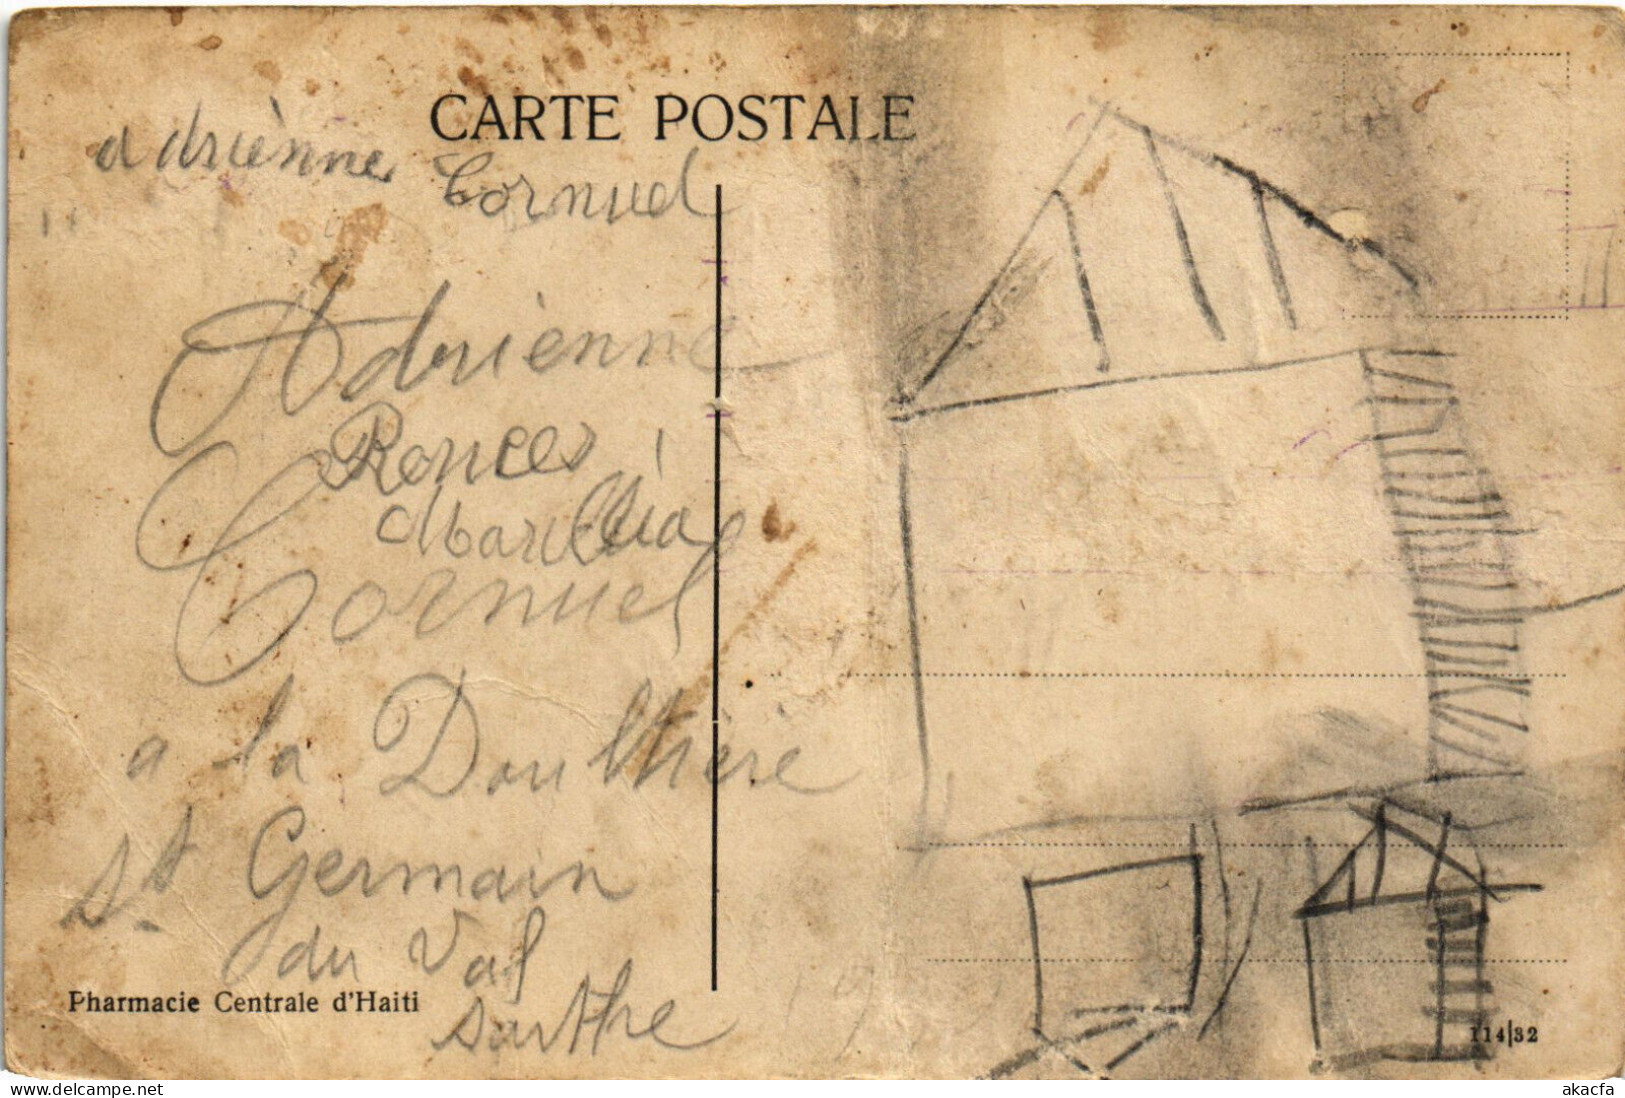 CARTE POSTALE
adriènne Cornuel
Adrienne
Ronces
Cornuel
a la Doulthière
St Germain
du Val
Sarthe
Pharmacie Centrale d'Haiti
114|32
delcampe.net
akacfa